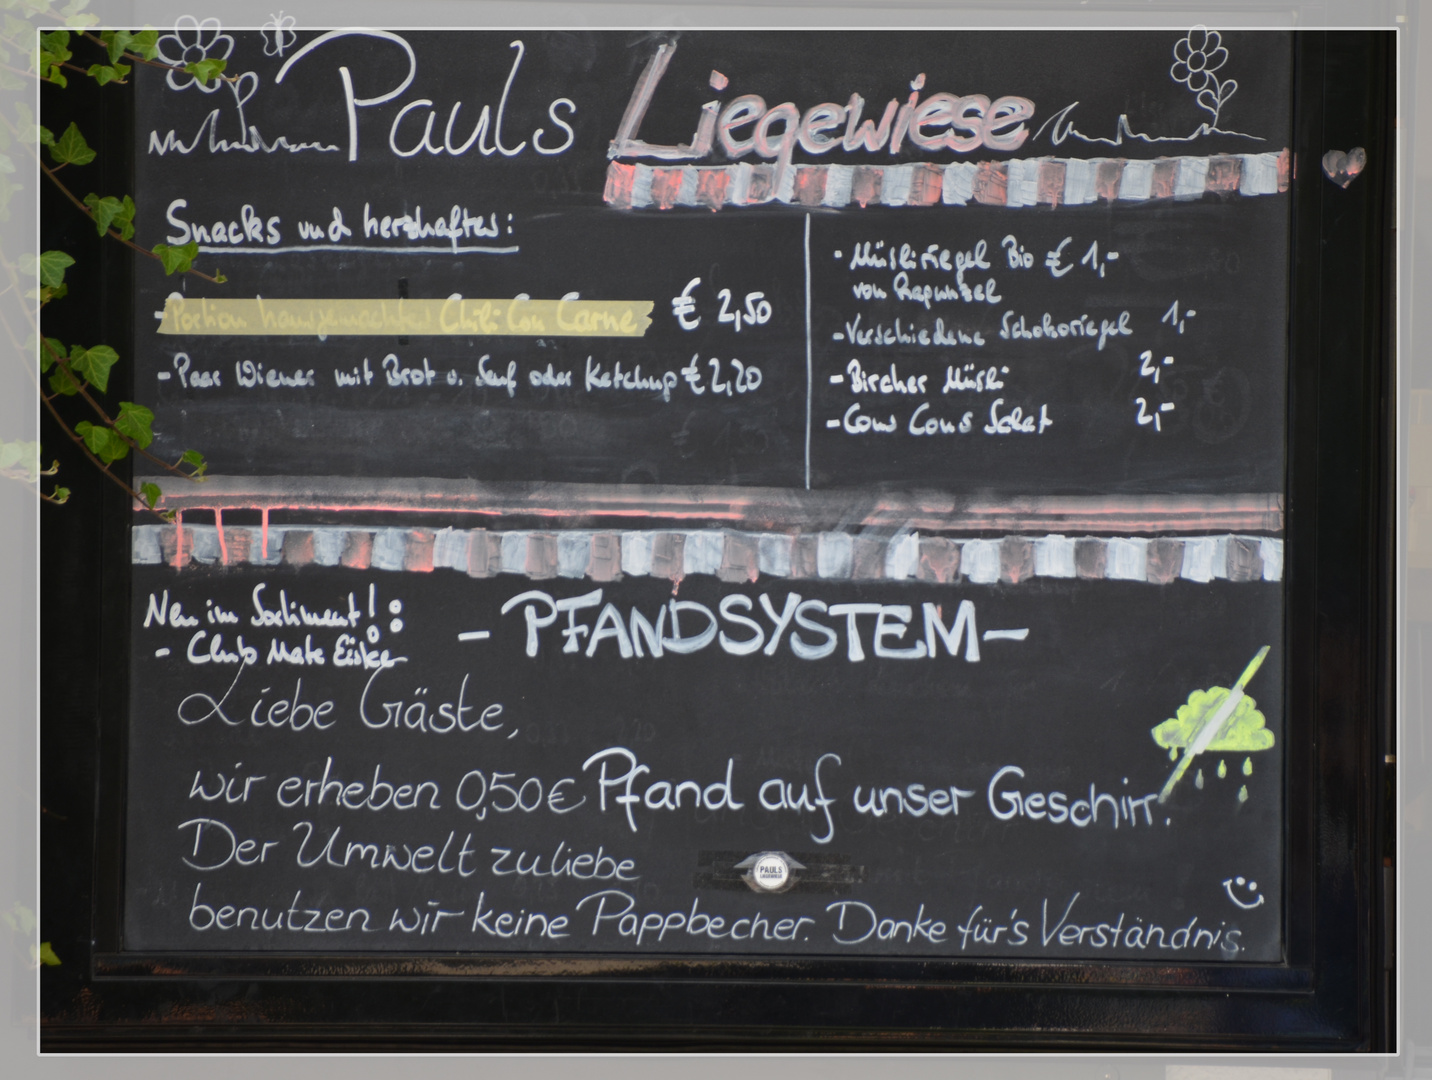 Pauls Liegewiese
Snacks und herzhaftes:
-Portion hausgemachtes Chili Con Carne € 2,50
-Paar Wiener mit Brot o. Senf oder Ketchup € 2,20
- Müsliriegel Bio € 1,-
von Rapunzel
-Verschiedene Schokoriegel 1,-
-Bircher Müsli 2,-
-Cous Cous Salat 2,-
Neu im Sortiment!:
- Club Mate Eistee
- PFANDSYSTEM-
Liebe Gäste,
wir erheben 0,50€ Pfand auf unser Geschirr.
Der Umwelt zuliebe
PAULS
LIEGEWIESE
benutzen wir keine Pappbecher. Danke für's Verständnis.